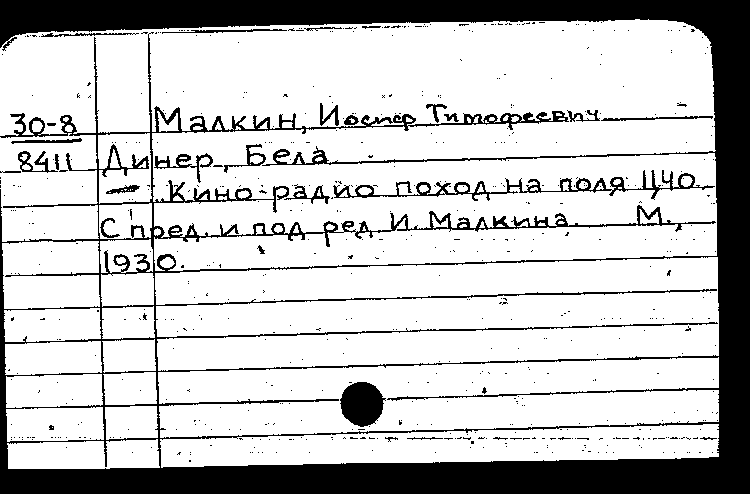 30-8 Малкин, Иоспер Тимофеевич
8411 Динер, Бела
— Кино-радио поход на поля ЦЧО.
С пред. и под ред. И. Малкина. М.,
1930.